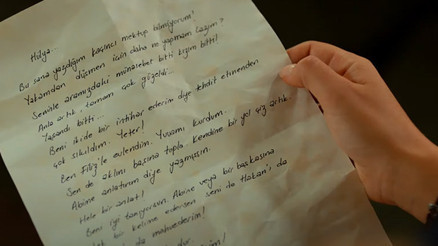 Hülya
Bu sana yazdığım kaçıncı mektup bilmiyorum
Yakamdan düşmen için daha ne yapmam lazım?
Seninle aramızdaki münasebet bitti kızım bitti!
Anla artık, tamam çok güzeldi...
Yaşandı bitti...
Beni ikide bir intihar ederim diye tehdit etmenden
çok sıkıldım. Yeter!
Ben Filiz'le evlendim. Yuvamı kurdum.
Sen de aklını başına topla kendine bir yol çiz artık.
Abine anlatırım diye yazmışsın.
Hele bir anlat!
Beni iyi tanıyorsun. Abine veya bir başkasına
tek bir kelime edersen seni de Hakan'ı da
mahvederim!